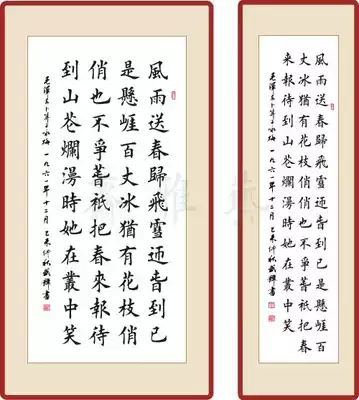 風雨送春歸飛雪迎旹到已
是懸崖百丈冰猶有花枝俏
俏也不爭萅祇把春來報待
到山花爛漫時她在叢中笑
毛澤東卜算子詠梅 一九六一年十二月 己未仲秋
風雨送春歸飛雪迎旹到已是懸崖百
丈冰猶有花枝俏俏也不爭萅祇把春
來報待到山花爛漫時她在叢中笑
毛澤東卜算子詠梅 一九六一年十二月 己未仲秋